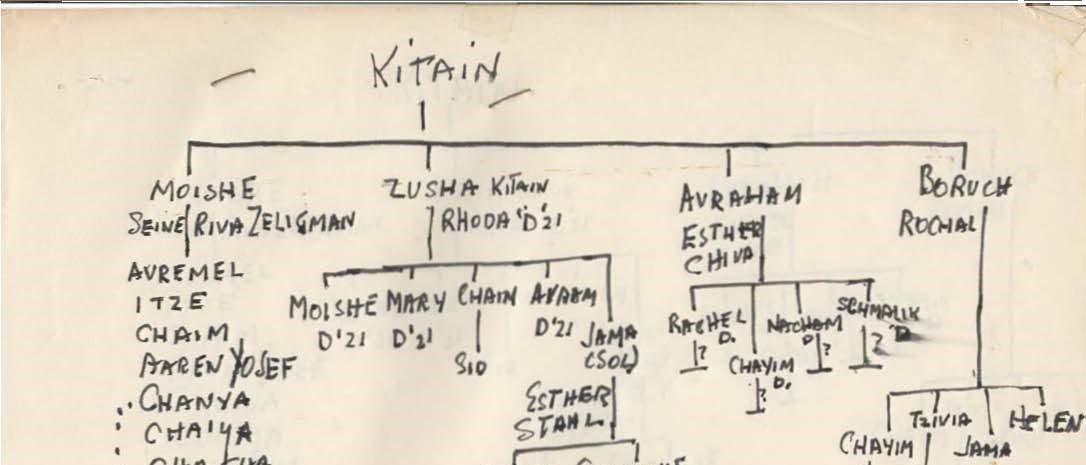 KITAIN
MOISHE
SEINE RIVA ZELIGMAN
AVREMEL
ITZE
CHAIM
AAREN YOSEF
CHANYA
CHAIYA
ZUSHA KITAIN
RHODA 'D'21
MOISHE MARY CHAIN AVRAM
D'21 D'21 D'21 JAMA
SID (SOL)
ESTHER
STAHL
AVRAHAM
ESTHER
CHIVA
RACHEL D.
?
CHAYIM D.
?
NACHAM D
?
SCHMALIK
? D
BORUCH
ROCHAL
CHAYIM
TZIVIA
JAMA
HELEN